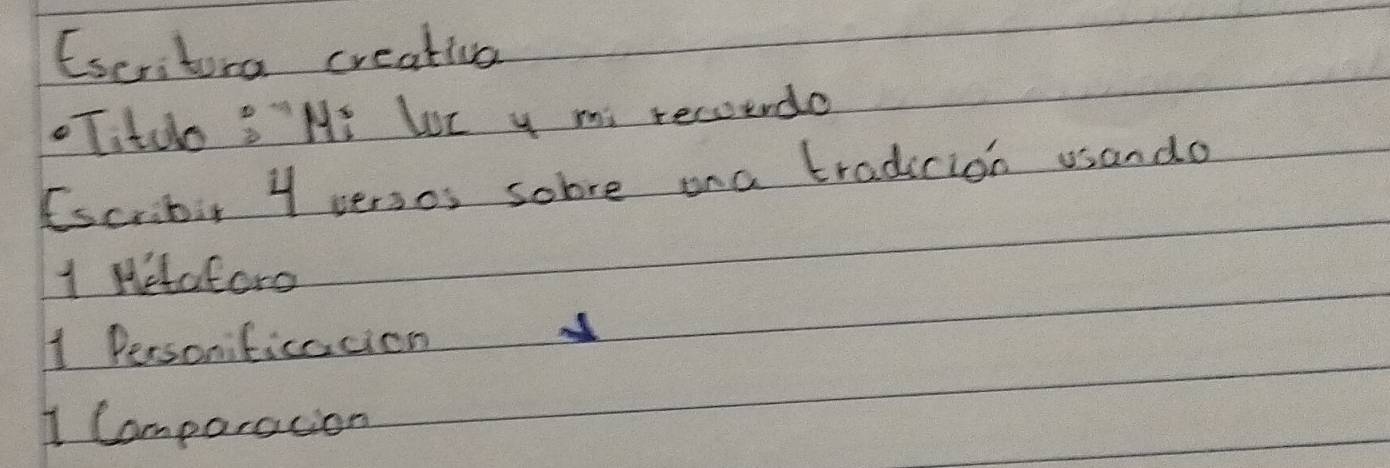 Escritura creativa
• Titulo : "Mi luz y mi recuerdo
Escribir 4 versos sobre una tradición usando
1 Métafora
1 Personificacion
1 Comparacion